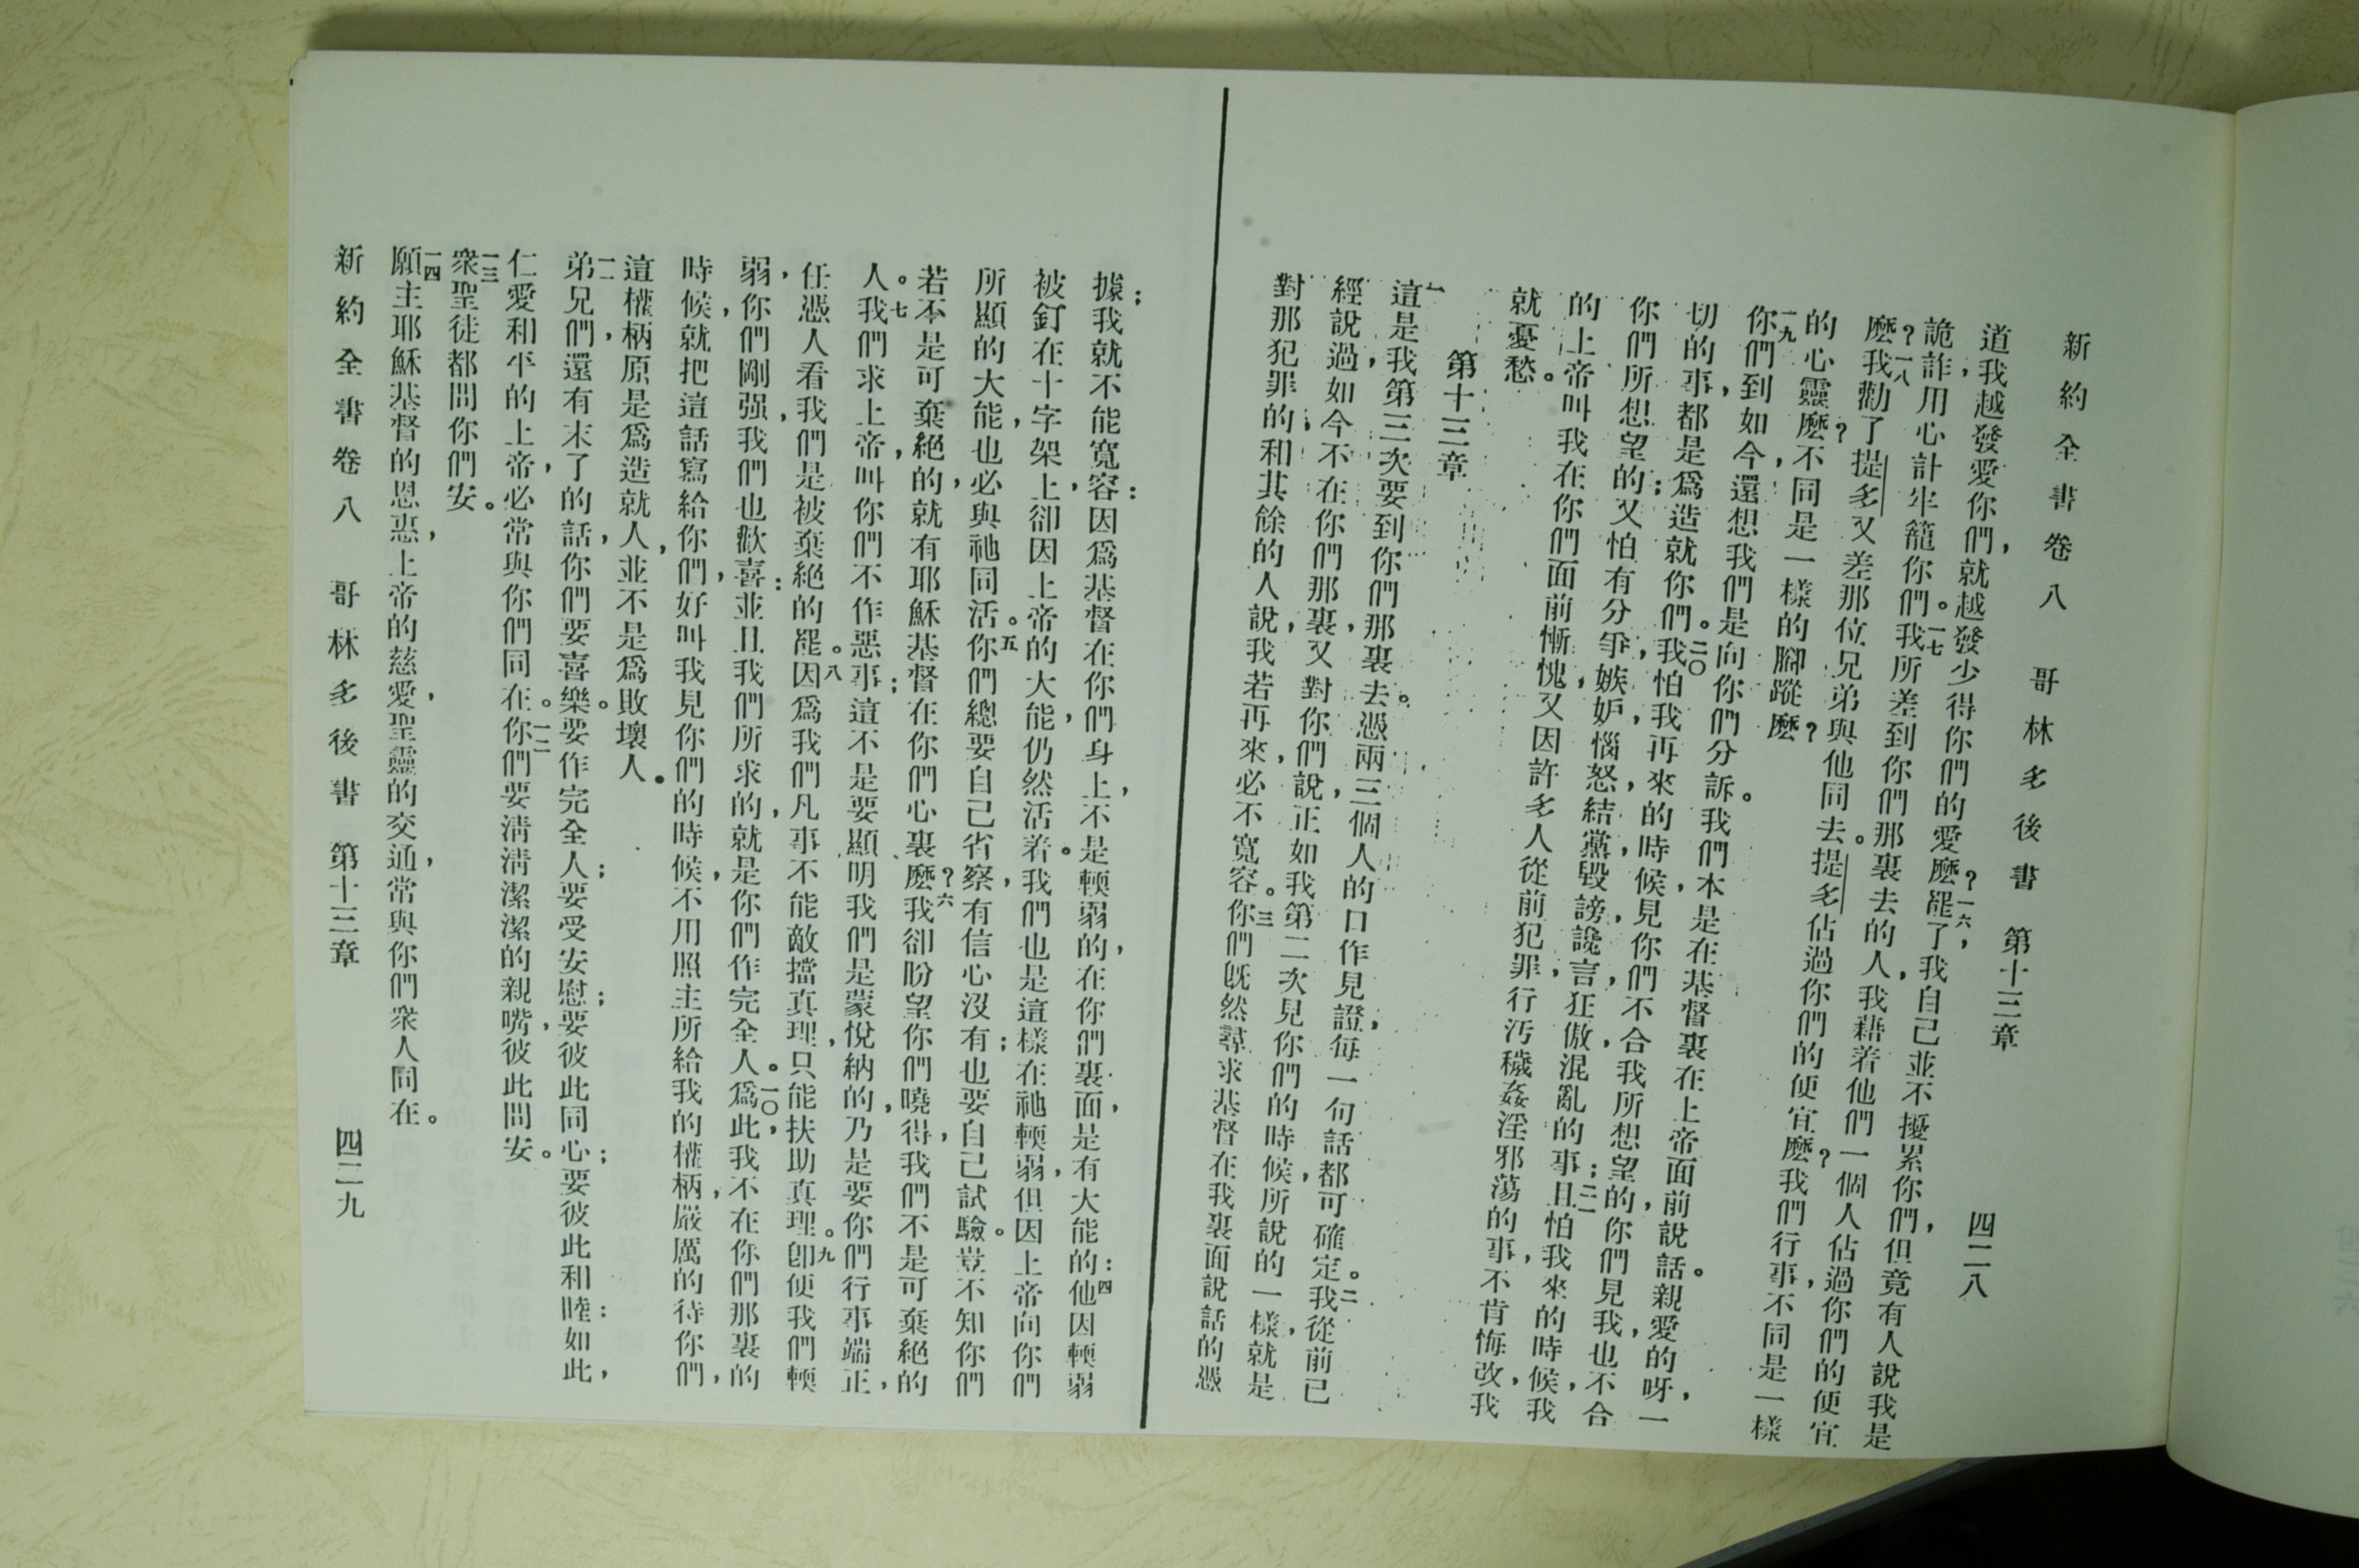 新約全書卷八 哥林多後書 第十三章 四二八
道,我越發愛你們,就越發少得你們的愛麼?一六罷了,我自己並不擾累你們,但竟有人說我是
詭詐,用心計牢籠你們。一七我所差到你們那裏去的人,我藉着他們一個人佔過你們的便宜
麼?一八我勸了提多,又差那位兄弟與他同去。提多佔過你們的便宜麼?我們行事,不同是一樣
的心靈麼?不同是一樣的腳蹤麼?
一九你們到如今,還想我們是向你們分訴。我們本是在基督裏在上帝面前說話。親愛的呀,一
切的事,都是爲造就你們。二〇我怕我再來的時候,見你們不合我所想望的,你們見我,也不合
你們所想望的;又怕有分爭,嫉妒,惱怒,結黨,毀謗,讒言,狂傲,混亂的事;二一且怕我來的時候,我
的上帝叫我在你們面前慚愧,又因許多人從前犯罪,行污穢姦淫邪蕩的事,不肯悔改,我
就憂愁。
第十三章
一這是我第三次要到你們那裏去。憑兩三個人的口作見證,每一句話都可確定。二我從前已
經說過,如今不在你們那裏,又對你們說,正如我第二次見你們的時候,所說的一樣,就是
對那犯罪的,和其餘的人,說,我若再來,必不寬容。三你們旣然尋求基督在我裏面說話的憑
據;我就不能寬容:因爲基督在你們身上,不是輭弱的,在你們裏面,是有大能的:四他因輭弱
被釘在十字架上,卻因上帝的大能,仍然活着。我們也是這樣在祂輭弱,但因上帝向你們
所顯的大能,也必與祂同活。五你們總要自己省察,有信心沒有;也要自己試驗。豈不知你們
若不是可棄絕的,就有耶穌基督在你們心裏麼?六我卻盼望你們曉得,我們不是可棄絕的
人。七我們求上帝,叫你們不作惡事;這不是要顯明我們是蒙悅納的,乃是要你們行事端正,
任憑人看我們是被棄絕的罷。八因爲我們凡事不能敵擋真理,只能扶助真理。九卽便我們輭
弱,你們剛强,我們也歡喜:並且我們所求的,就是你們作完全人。一〇爲此,我不在你們那裏的
時候,就把這話寫給你們,好叫我見你們的時候,不用照主所給我的權柄,嚴厲的待你們,
這權柄原是爲造就人,並不是爲敗壞人。
一一弟兄們,還有末了的話,你們要喜樂。要作完全人;要受安慰;要彼此同心;要彼此和睦:如此,
仁愛和平的上帝,必常與你們同在。一二你們要淸淸潔潔的親嘴,彼此問安。
一三衆聖徒都問你們安。
一四願主耶穌基督的恩惠,上帝的慈愛,聖靈的交通,常與你們衆人同在。
新約全書卷八 哥林多後書 第十三章 四二九